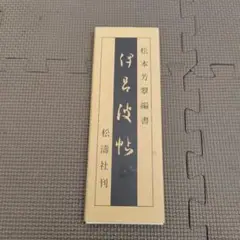 松本芳翠編書
伊呂波帖
松濤社刊